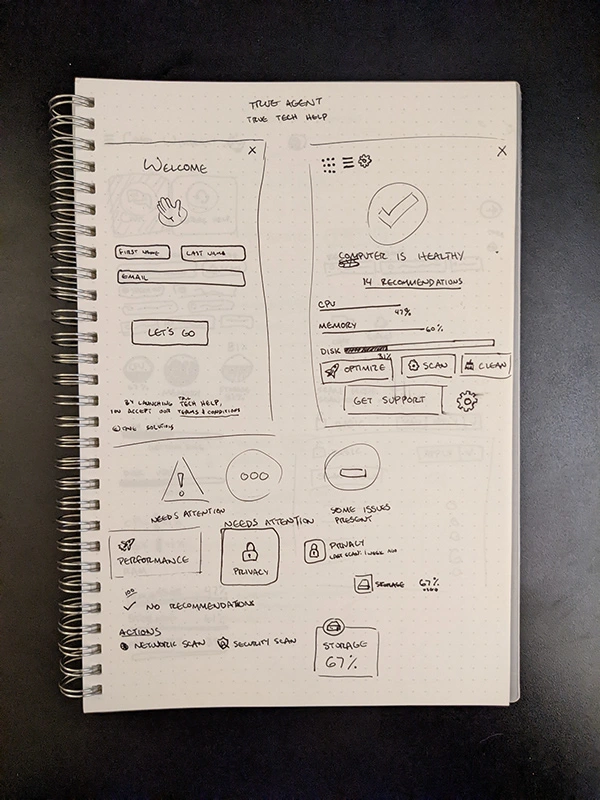 TRUE AGENT
TRUE TECH HELP
X
WELCOME
FIRST NAME
LAST NAME
EMAIL
LET'S GO
BY LAUNCHING TRUE TECH HELP,
YOU ACCEPT OUR TERMS & CONDITIONS
SOLUTIONS
X
COMPUTER IS HEALTHY
14 RECOMMENDATIONS
CPU
47%
MEMORY
60%
DISK
31%
OPTIMIZE
SCAN
CLEAN
GET SUPPORT
!
NEEDS ATTENTION
NEEDS ATTENTION
SOME ISSUES
PRESENT
PERFORMANCE
PRIVACY
PRIVACY
LAST SCAN: 1 WEEK AGO
STORAGE 67%
100
NO RECOMMENDATIONS
ACTIONS
NETWORK SCAN
SECURITY SCAN
STORAGE
67%